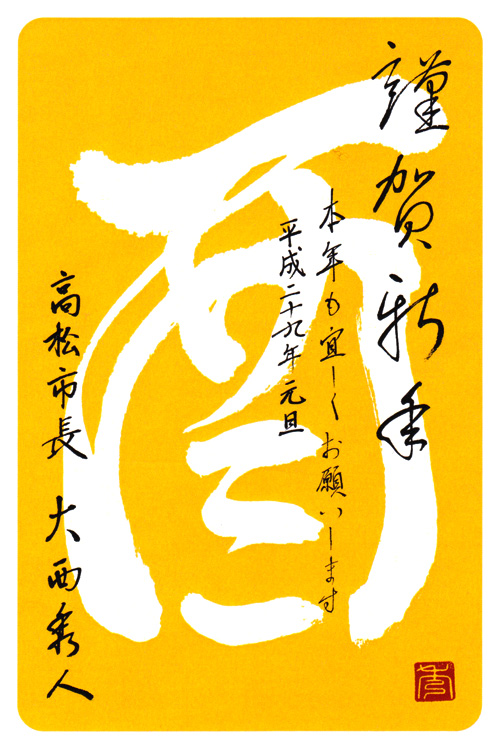 謹賀新年
本年も宜しくお願いします
平成二十九年元旦
高松市長 大西秀人
酉
秀